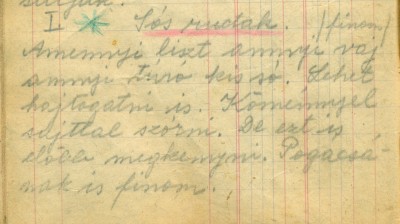 I Sós rudak. (finom)
Amennyi liszt annyi vaj
annyi túró kis só. Lehet
hajtogatni is. Köménnyel
sajttal szórni. De ezt is
előbb megkenyni. Pogácsá-
nak is finom.